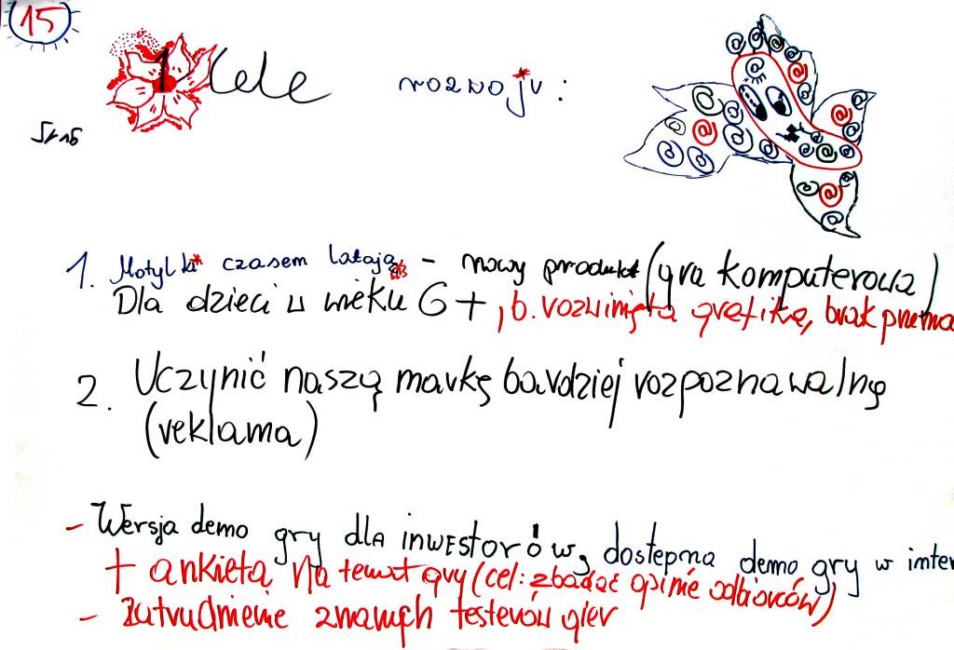 15
1 Cele rozwoju:
1. Motylki czasem latają - nowy produkt (gra komputerowa)
Dla dzieci w wieku 6+, b. rozwinięta grafika, brak
2. Uczynić naszą markę bardziej rozpoznawalną
(reklama)
- Wersja demo gry dla inwestorów, dostępna demo gry w inter
+ ankieta na temat gry (cel: zbadać opinie odbiorców)
- Zatrudnienie znanych testerów gier